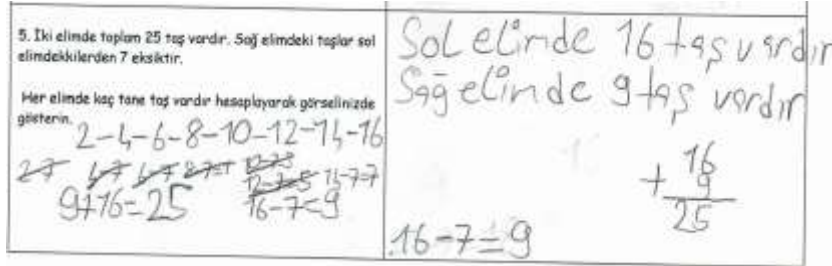 5. İki elimde toplam 25 taş vardır. Sağ elimdeki taşlar sol
elimdekkilerden 7 eksiktir.
Her elimde kaç tane taş vardır hesaplayarak görselinizde
gösterin.
2-4-6-8-10-12-14-16
9+16=25
16-7=9
Sol elimde 16 taş vardır
Sağ elimde 9 taş vardır
16
+ 9
25
16-7=9